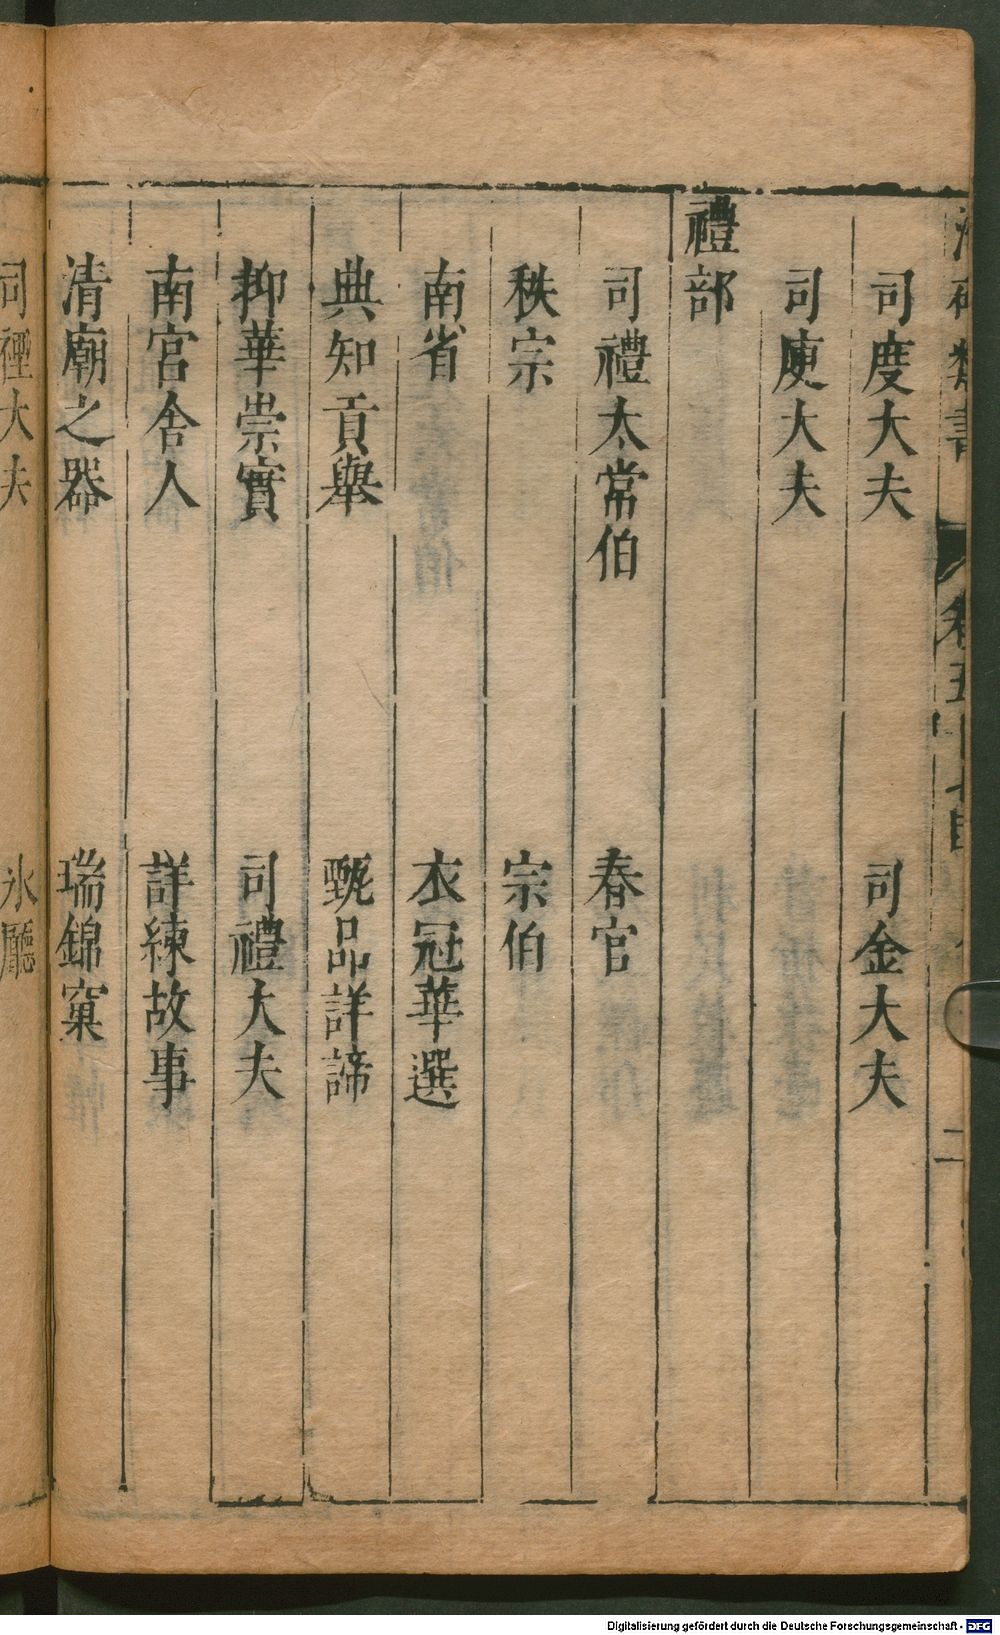 司度大夫　司金大夫
司庾大夫
禮部
司禮太常伯　春官
秩宗　宗伯
南省　衣冠華選
典知貢舉　甄品詳諦
抑華崇實　司禮大夫
南宮舍人　詳練故事
清廟之器　瑞錦窠
司禋大夫　冰廳
Digitalisierung gefördert durch die Deutsche Forschungsgemeinschaft - DFG